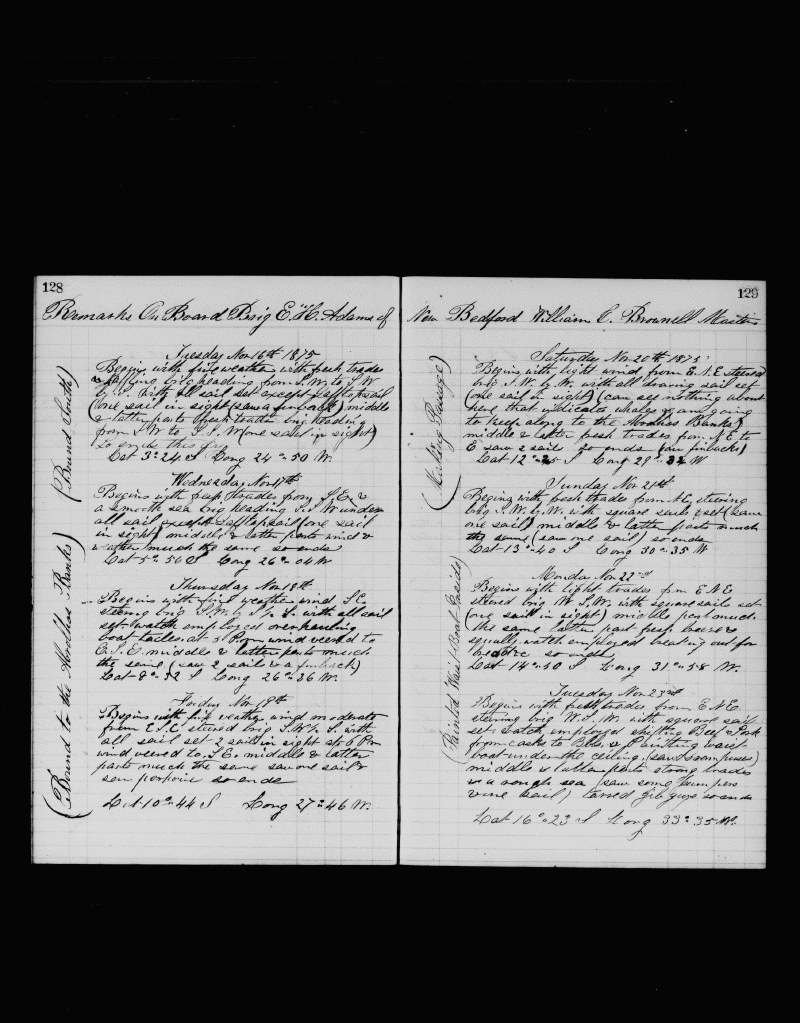 128
Remarks On Board Brig E. H. Adams of
(Bound South)
(Bound to the Abrolhos Banks)
Tuesday Nov 16th 1875
Begins with fine weather with fresh trades
brig heading from S.W. to S W
by S. with all sail set except
(one sail in sight) (saw a finback) middle
& latter parts fresh trades brig heading
from S W to (one sail in sight)
so ends this day
Lat 3°.24 S Long 24°.50 W.
Wednesday Nov 17th
Begins with fresh trades from S.E. &
a smooth sea brig heading S.S.W under
all sail except (one sail
in sight) middle & latter parts wind &
weather much the same so ends
Lat 5°.56 S Long 26°.04 W
Thursday Nov 18th
Begins with fine weather wind S E
steering brig S.W. by S. with all sail
set watch employed overhauling
boat tacles. at 5 P.m wind veered to
E.S.E. middle & latter parts much
the same (saw 2 sail & a finback)
Lat 8°.32 S Long 26°.36 W.
Friday Nov 19th
Begins with weather wind moderate
from E.S.E steered brig S.W. S. with
all sail set 2 sail in sight at 6 P.m
wind veered to S.E. middle & latter
parts much the same saw one sail &
sen porpoise so ends
Lat 10°.44 S Long 27°.46 W.
129
New Bedford William C. Brownell Master
(Making Passage)
(Painted Waist Boat Inside)
Saturday Nov 20th 1875
Begins with light wind from E.N.E steered
brig S.W. by W. with all drawing sail set
(one sail in sight) (can see nothing about
here that indicates whales & am going
to keep along to the Abrolhos Banks)
middle & latter fresh trades from N.E to
E saw 2 sail so ends (saw finbacks)
Lat 12°.25 S Long 29°.32 W
Sunday Nov 21st
Begins with fresh trades from N.E. steering
brig S.W. by W. with square sails set (saw
one sail) middle & latter parts much
the same (saw one sail) so ends
Lat 13°.40 S Long 30°.35 W
Monday Nov 22nd
Begins with light trades from E N E
steered brig W S.W. with square sails set
(one sail in sight) middle part much
the same latter part fresh breeze &
squally watch employed breaking out for
so ends
Lat 14°.50 S Long 31°.58 W.
Tuesday Nov 23rd
Begins with fresh trades from E N E
steering brig W.S.W. with square sail
set watch employed shifting Beef & Pork
from casks to Bbls, & Painting waist
boat under the ceiling. (saw grampuses)
middle & latter parts strong trades
& a rough sea (saw some jumpers
& one sail) tarred jib guys so ends
Lat 16°.23 S Long 33°.35 W.